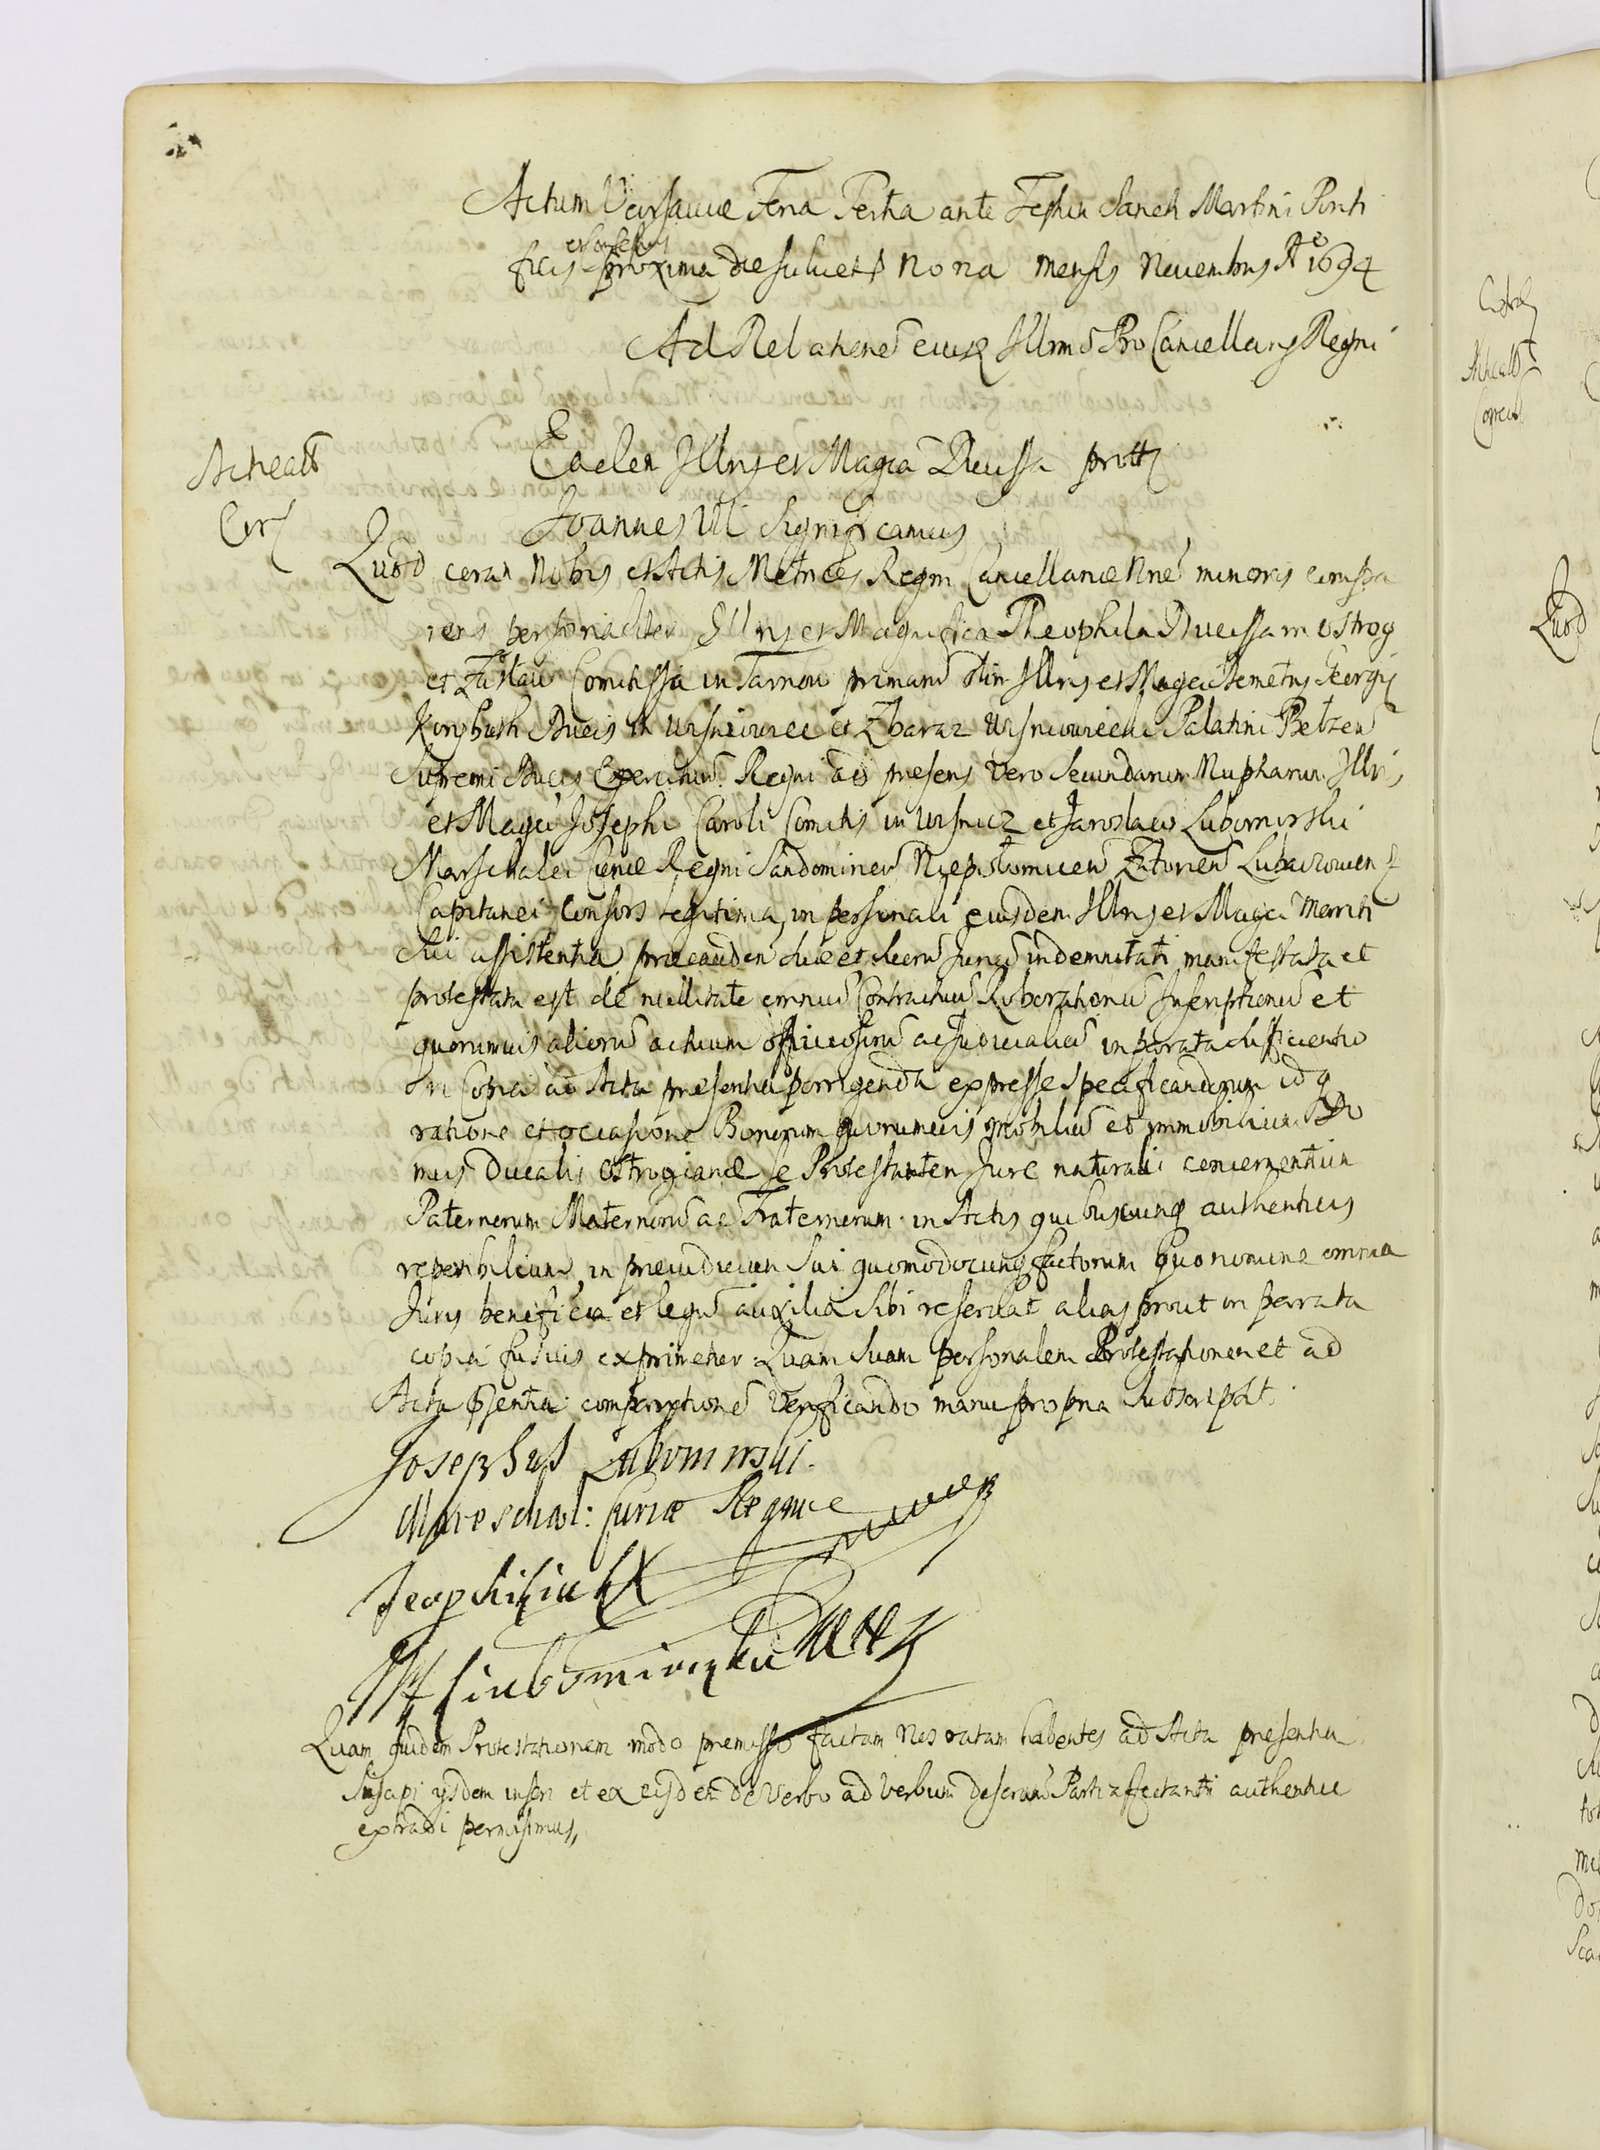 Actum Varsaviæ Feria Tertia ante Festum Sancti Martini Ponti
ficis et Confessoris proxima die scilicet Nona mensis Novembris Aº 1694
Ad Relationem eiusd Illrmi Pro Cancellarij Regni
Eadem Illris et Magca Ducissa prottr
Acticatt
Corr
Joannes III Significamus
Quod coram Nobis et Actis Metrices Regni Cancellariæ Nræ minoris compa
rens personaliter Illris et Magnifica Theophila Ducissa in Ostrog
et Zaslaw Comitissa in Tarnow primarū olim Illris et Magci Demetrij Georgij
Korybuth Ducis in Wisniowiec et Zbaraz Wisniowiecki Palatini Belzen
Supremi Ducis Exercituū Regni ad præsens vero Secundarum Nuptiarum Illris
et Magci Josephi Caroli Comitis in Wisnicz et Jaroslaw Lubomirski
Marschalci Curiæ Regni Sandomirien Niepolomicen Zatorien Lubaczovien
Capitanei Consors legitima, in personali eiusdem Illris et Magci Mariti
Sui assistentia præcavden suæ et suorū Juriū indemnitati manifestata et
protestata est de nullitate omniū Contractuū Roborationū Inscriptionū et
quorumvis aliorū actuum officiosorū ac Judicialiū in parata sufficientio
ri Copia ad Acta præsentia porrigenda expresse specificandorum idq
ratione et occasione Bonorum quorumvis mobiliū et immobiliū Do
mus Ducalis Ostrogianæ se Protestantem Jure naturali concernentium
Paternorum Maternorū ac Fraternorum in Actis quibuscunq authenticis
reperibilium, in præiudicium Sui quomodocunq factorum Quo nomine omnia
Juris beneficia et legū auxilia sibi reservat alias prout in parata
copia fusius exprimetur. Quam Suam personalem Protestationem et ad
Acta præsentia comparitionē verificando manu propria subscripsit.
Josephus Lubomirski
Mareschal: Curiæ Regniæ
Teophilia
Lubomirska
Quam quidem Protestationem modo præmisso factam Nos ratam habentes ad Acta præsentia
Suscipi ijsdem inscri et ex eisdem de Verbo ad verbum descriptā Parti affectanti authentice
extradi permisimus,